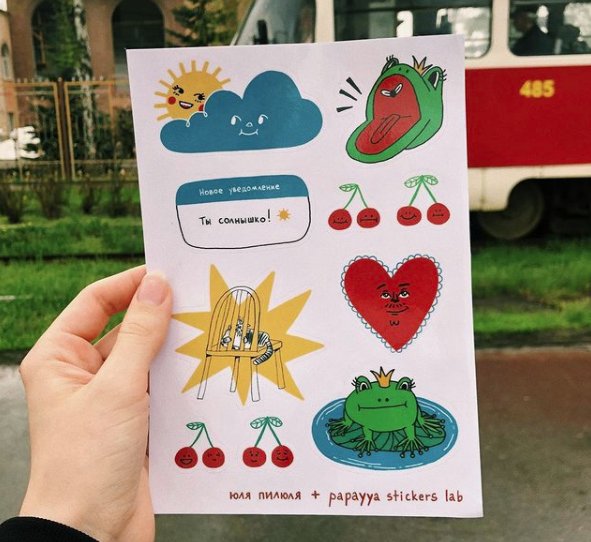 485
Новое уведомление
Ты солнышко!
юля пилюля + papayya stickers lab